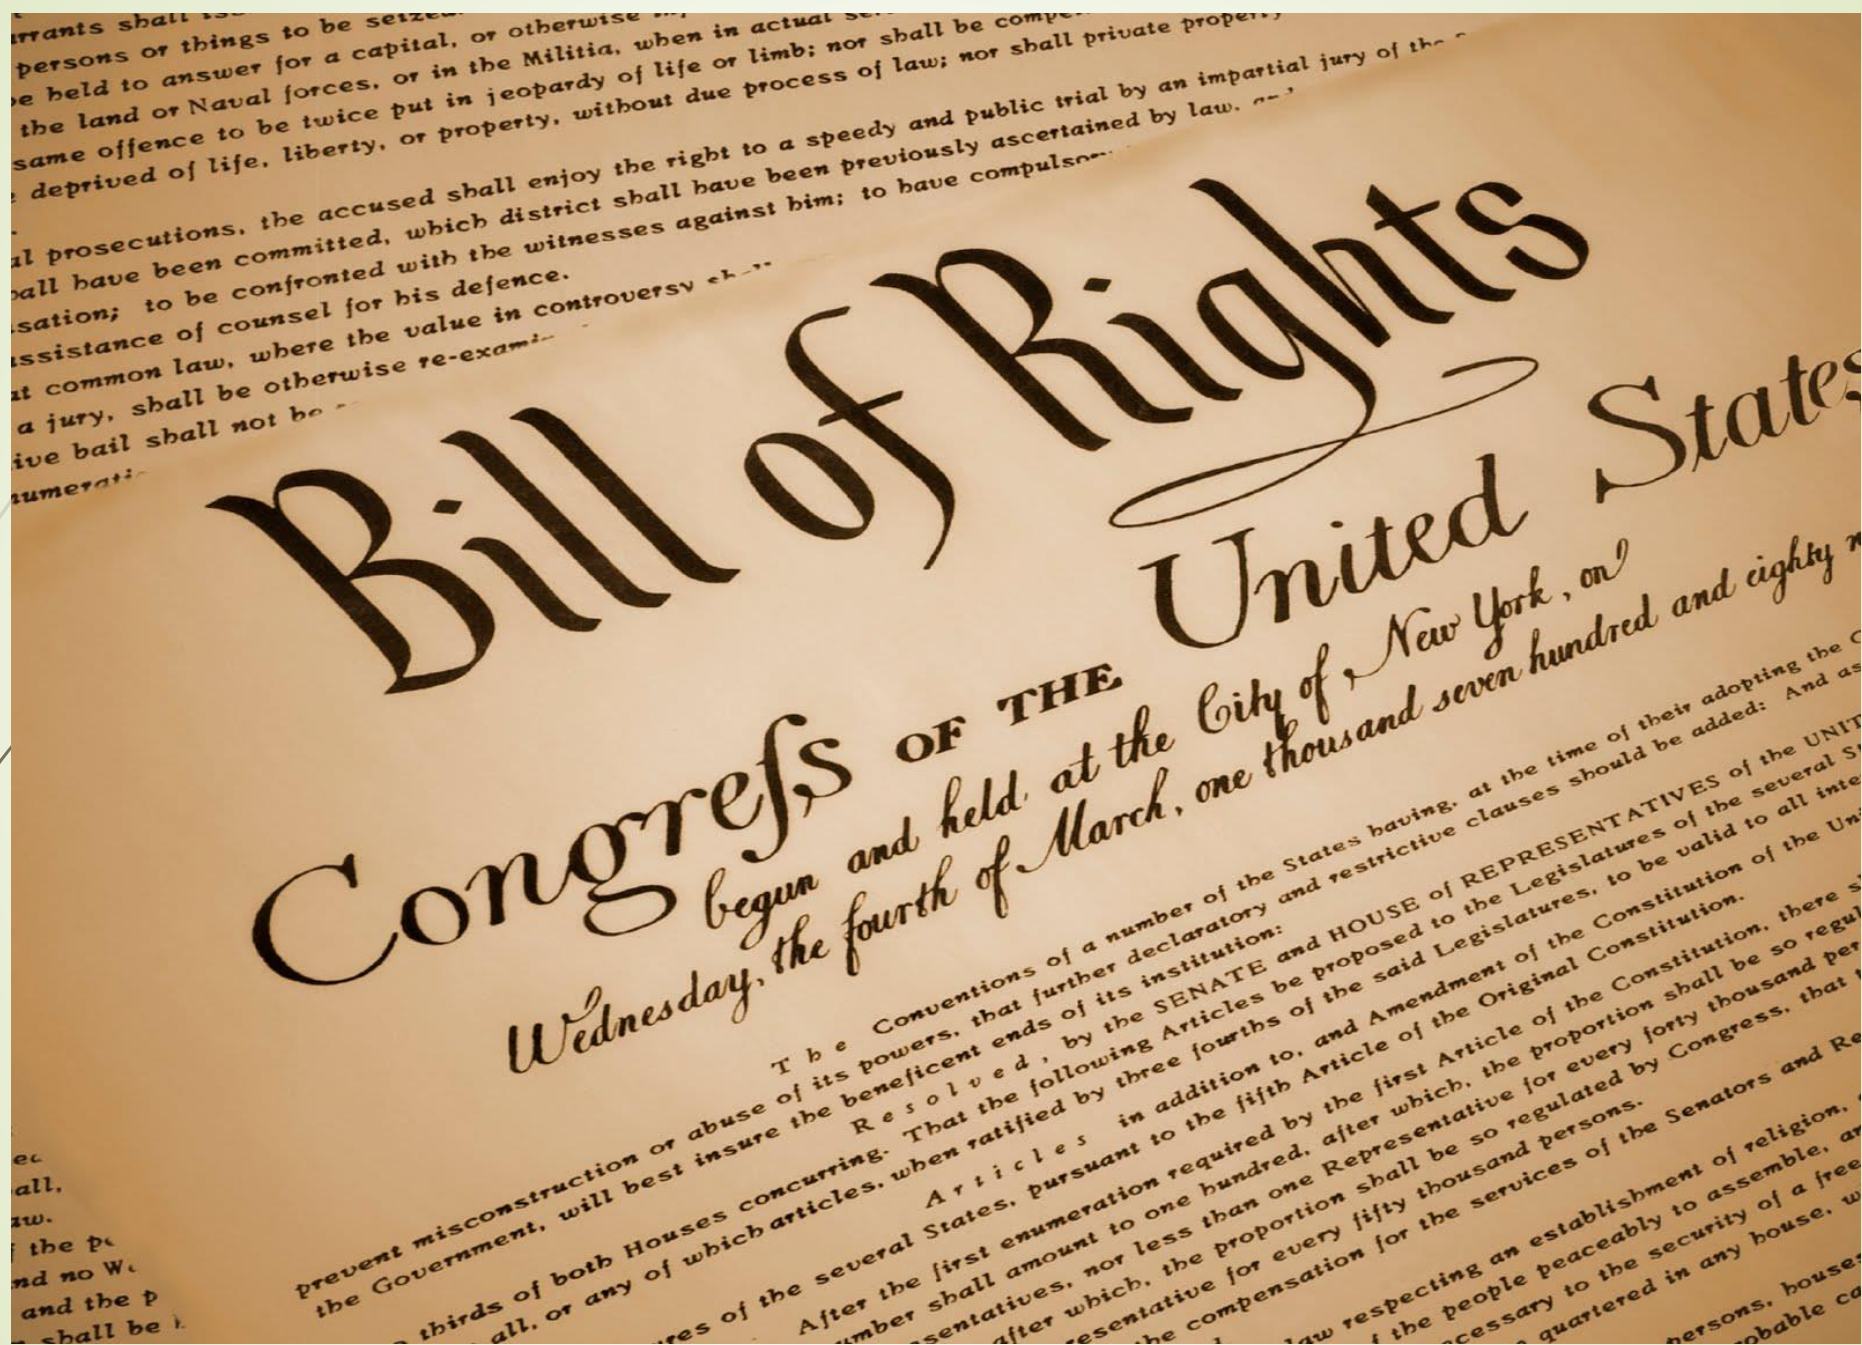 persons or things to be
be held to answer for a capital, or otherwise
the land or Naval forces, or in the Militia, when in actual
same offence to be twice put in jeopardy of life or limb; nor shall be
deprived of life, liberty, or property, without due process of law; nor shall private property
prosecutions, the accused shall enjoy the right to a speedy and public trial by an impartial jury of the
have been committed, which district shall have been previously ascertained by law, and
to be confronted with the witnesses against him; to have
assistance of counsel for his defence.
at common law, where the value in controversy
a jury, shall be otherwise
bail shall not be
Bill of Rights
Congreſs OF THE United States
begun and held at the City of New York, on
Wednesday, the fourth of March, one thousand seven hundred and eighty
The Conventions of a number of the States having, at the time of their adopting the
prevent misconstruction or abuse of its powers, that further declaratory and restrictive clauses should be added: And as
the Government, will best insure the beneficent ends of its institution:
Resolved, by the SENATE and HOUSE of REPRESENTATIVES of the
thirds of both Houses concurring. That the following Articles be proposed to the Legislatures of the several
all, or any of which articles, when ratified by three fourths of the said Legislatures, to be valid to all
Articles in addition to, and Amendment of the Constitution of the
of the several States, pursuant to the fifth Article of the Original Constitution.
After the first enumeration required by the first Article of the Constitution, there
shall amount to one hundred, after which, the proportion shall be so
nor less than one Representative for every forty thousand
after which, the proportion shall be so regulated by Congress, that
for every fifty thousand persons.
the compensation for the services of the Senators and
law respecting an establishment of religion,
the people peaceably to assemble,
to the security of a free
quartered in any house,
persons,
all,
the
and no
and the
shall be